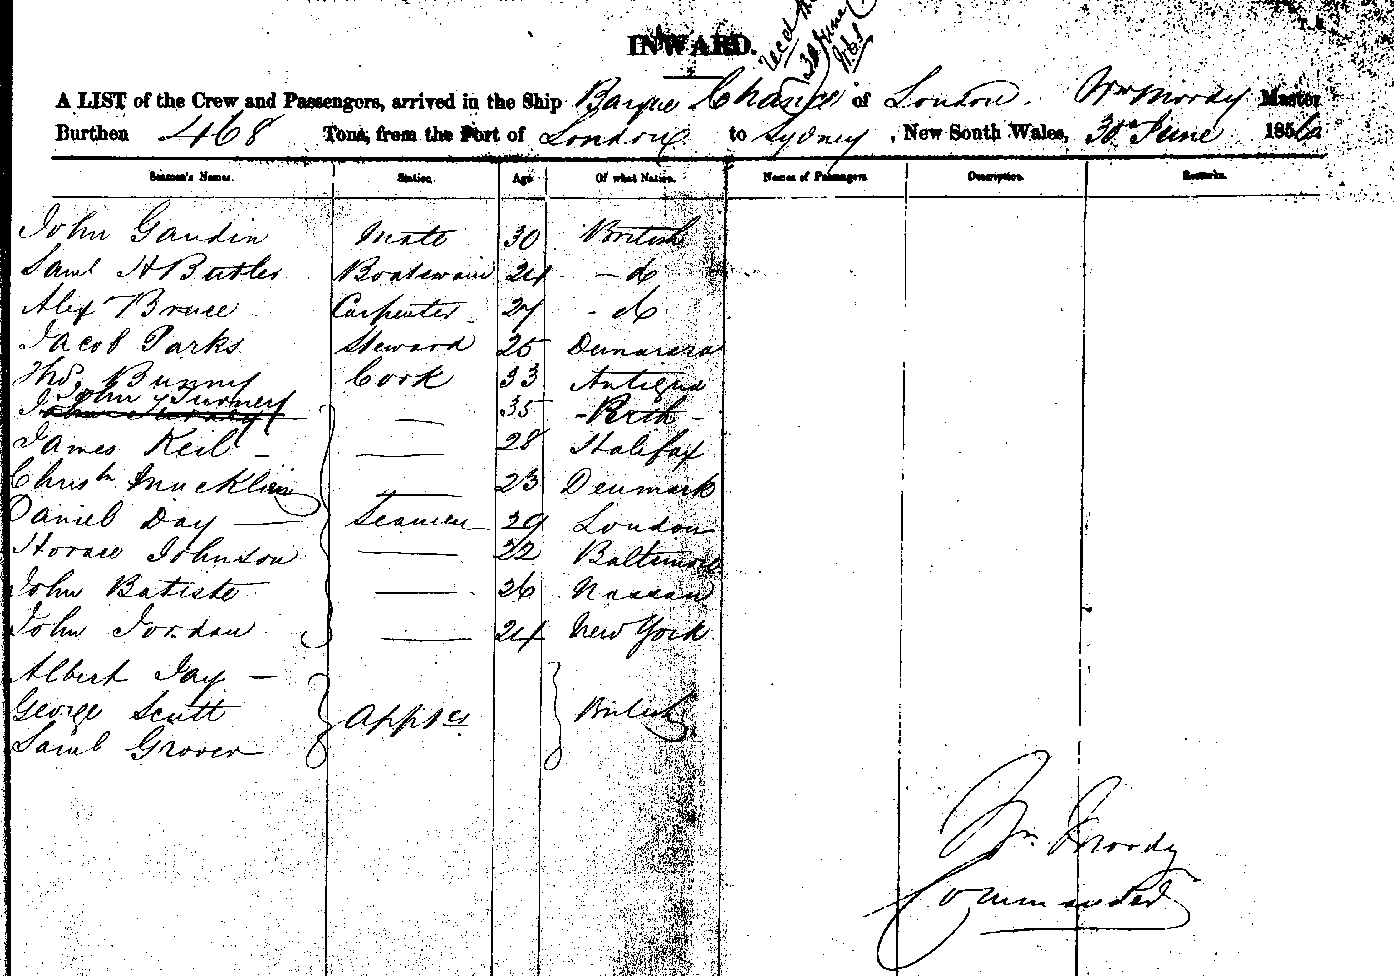 INWARD.
30 June
A LIST of the Crew and Passengers, arrived in the Ship Barque Chance of London. Wm Moody Master
Burthen 468 Tons, from the Port of London to Sydney, New South Wales, 30th June 1860
Seamen's Names. Station. Age Of what Nation. Names of Passengers. Description. Remarks.
John Gaudin Mate 30 British
Saml H Butler Boatswain 24 - do
Alex Bruce Carpenter 27 - do
Jacob Parks Steward 25 Demarara
Thos. Bunny Cook 33 Antigua
John Turner 35 - Perth -
James Keil - 28 Halifax
Christn Mucklin 23 Denmark
Daniel Day Seamen 29 London
Horace Johnson 22 Baltimore
John Batiste 26 Nassau
John Jordan 24 New York
Albert Jay -
George Scutt Apptes British
Saml Grover
Wm. Moody
Commander